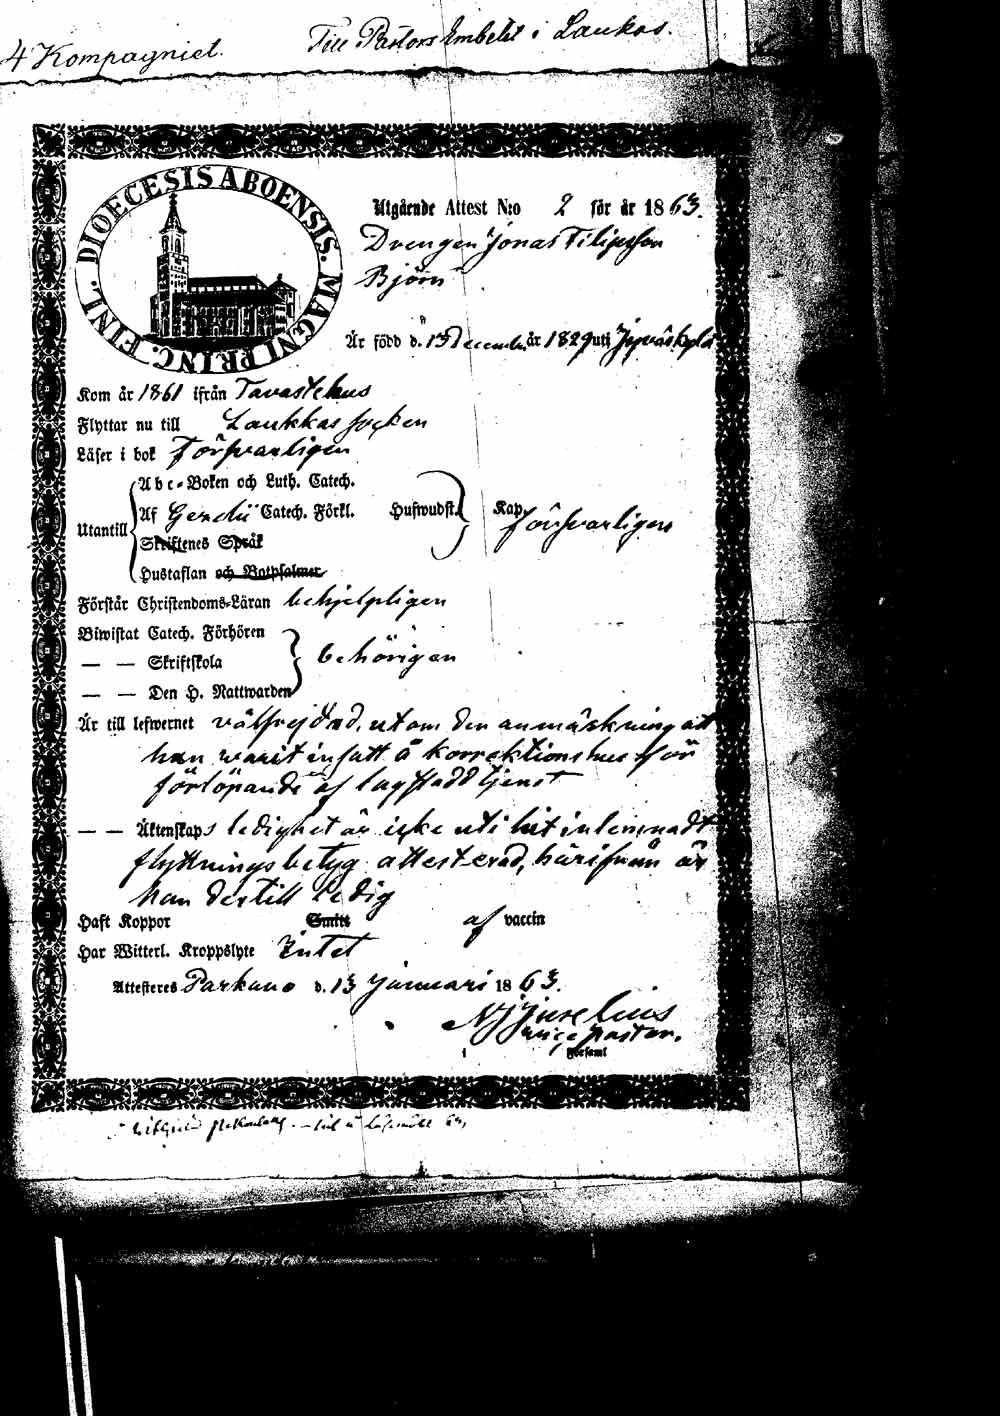 4 Kompagniet.
Till Pastors Embetet i Laukas.
DIOECESIS ABOENSIS. MAGNI PRINC. FINL.
Utgående Attest N:o 2 för år 1863.
Drengen Jonas Filipsson
Björn
Är född d. 15 December år 1829 uti Jyväskylä
Kom år 1861 ifrån Tavastehus
Flyttar nu till Laukkas socken
Läser i bok Försvarligen
Abc-Boken och Luth. Catech.
Utantill Af Gerdii Catech. Förkl. Hufwudst. Kap. försvarligen
Skriftenes Språk
Hustaflan och Botpsalmer
Förstår Christendoms-Läran behjelpligen
Biwistat Catech. Förhören
— — Skriftskola behörigen
— — Den H. Nattwarden
Är till lefwernet välfrejdad, utom den anmärkning att
han varit insatt å korrektionshus för
förlöpande af lagstadd tjenst
— — Äktenskaps ledighet är icke uti hit inlemnadt
flyttningsbetyg attesterad, härifrån är
han dertill ledig
Haft Koppor Smitt af vaccin
Har Witterl. Kroppslyte Intet
Attesteres Parkano d. 13 Januari 1863.
Juselius
vice pastor.
i Församl